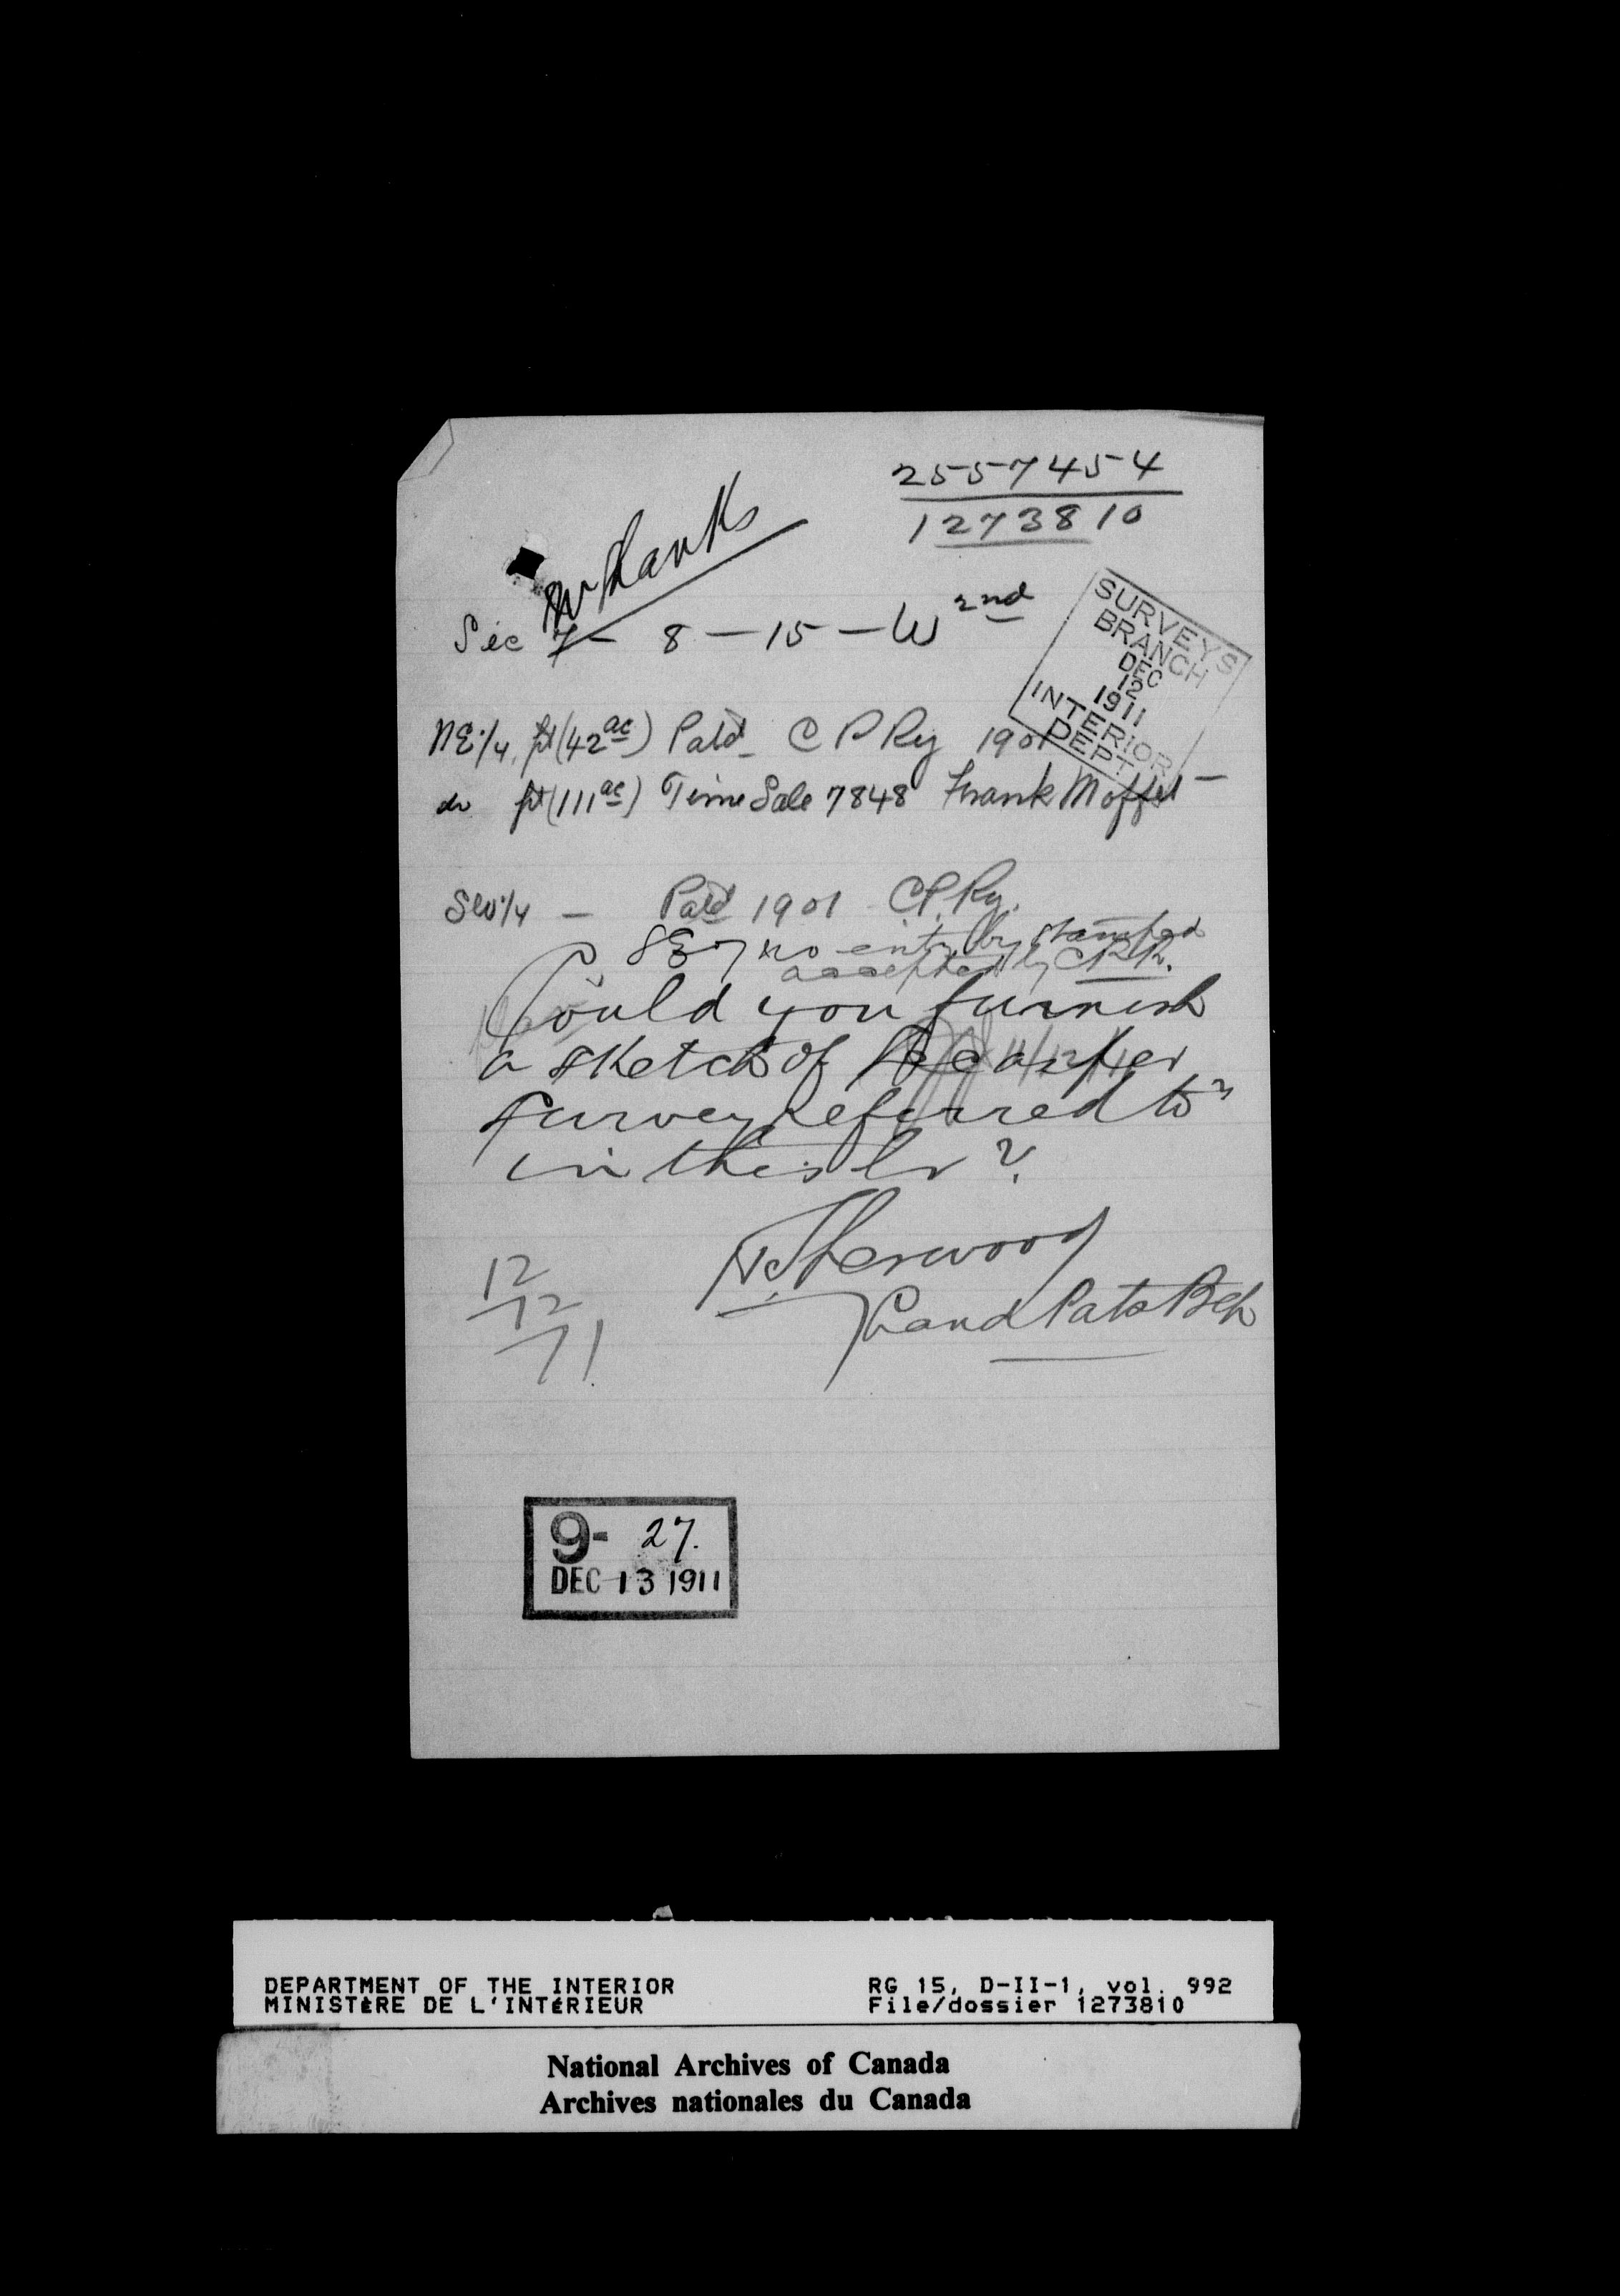 2557454
1273810
Mr Shanks
Sec 7 - 8 - 15 - W 2nd
SURVEYS
BRANCH
DEC
12
1911
INTERIOR
DEPT
NE 1/4, pt (42 ac) Patd - C P Ry 1901
do pt (111 ac) Time Sale 7848 Frank Moffet -
SW 1/4 - Patd 1901 C.P. Ry.
SE 7 no entry by stamped
accepted by C.P.R.
11/12/11
Could you furnish
a sketch of Sec as per
survey referred to
in this lr?
Sherwood
Land Pats Bch
12
12
11
9- 27.
DEC 13 1911
DEPARTMENT OF THE INTERIOR
MINISTÈRE DE L'INTÉRIEUR
RG 15, D-II-1, vol. 992
File/dossier 1273810
National Archives of Canada
Archives nationales du Canada